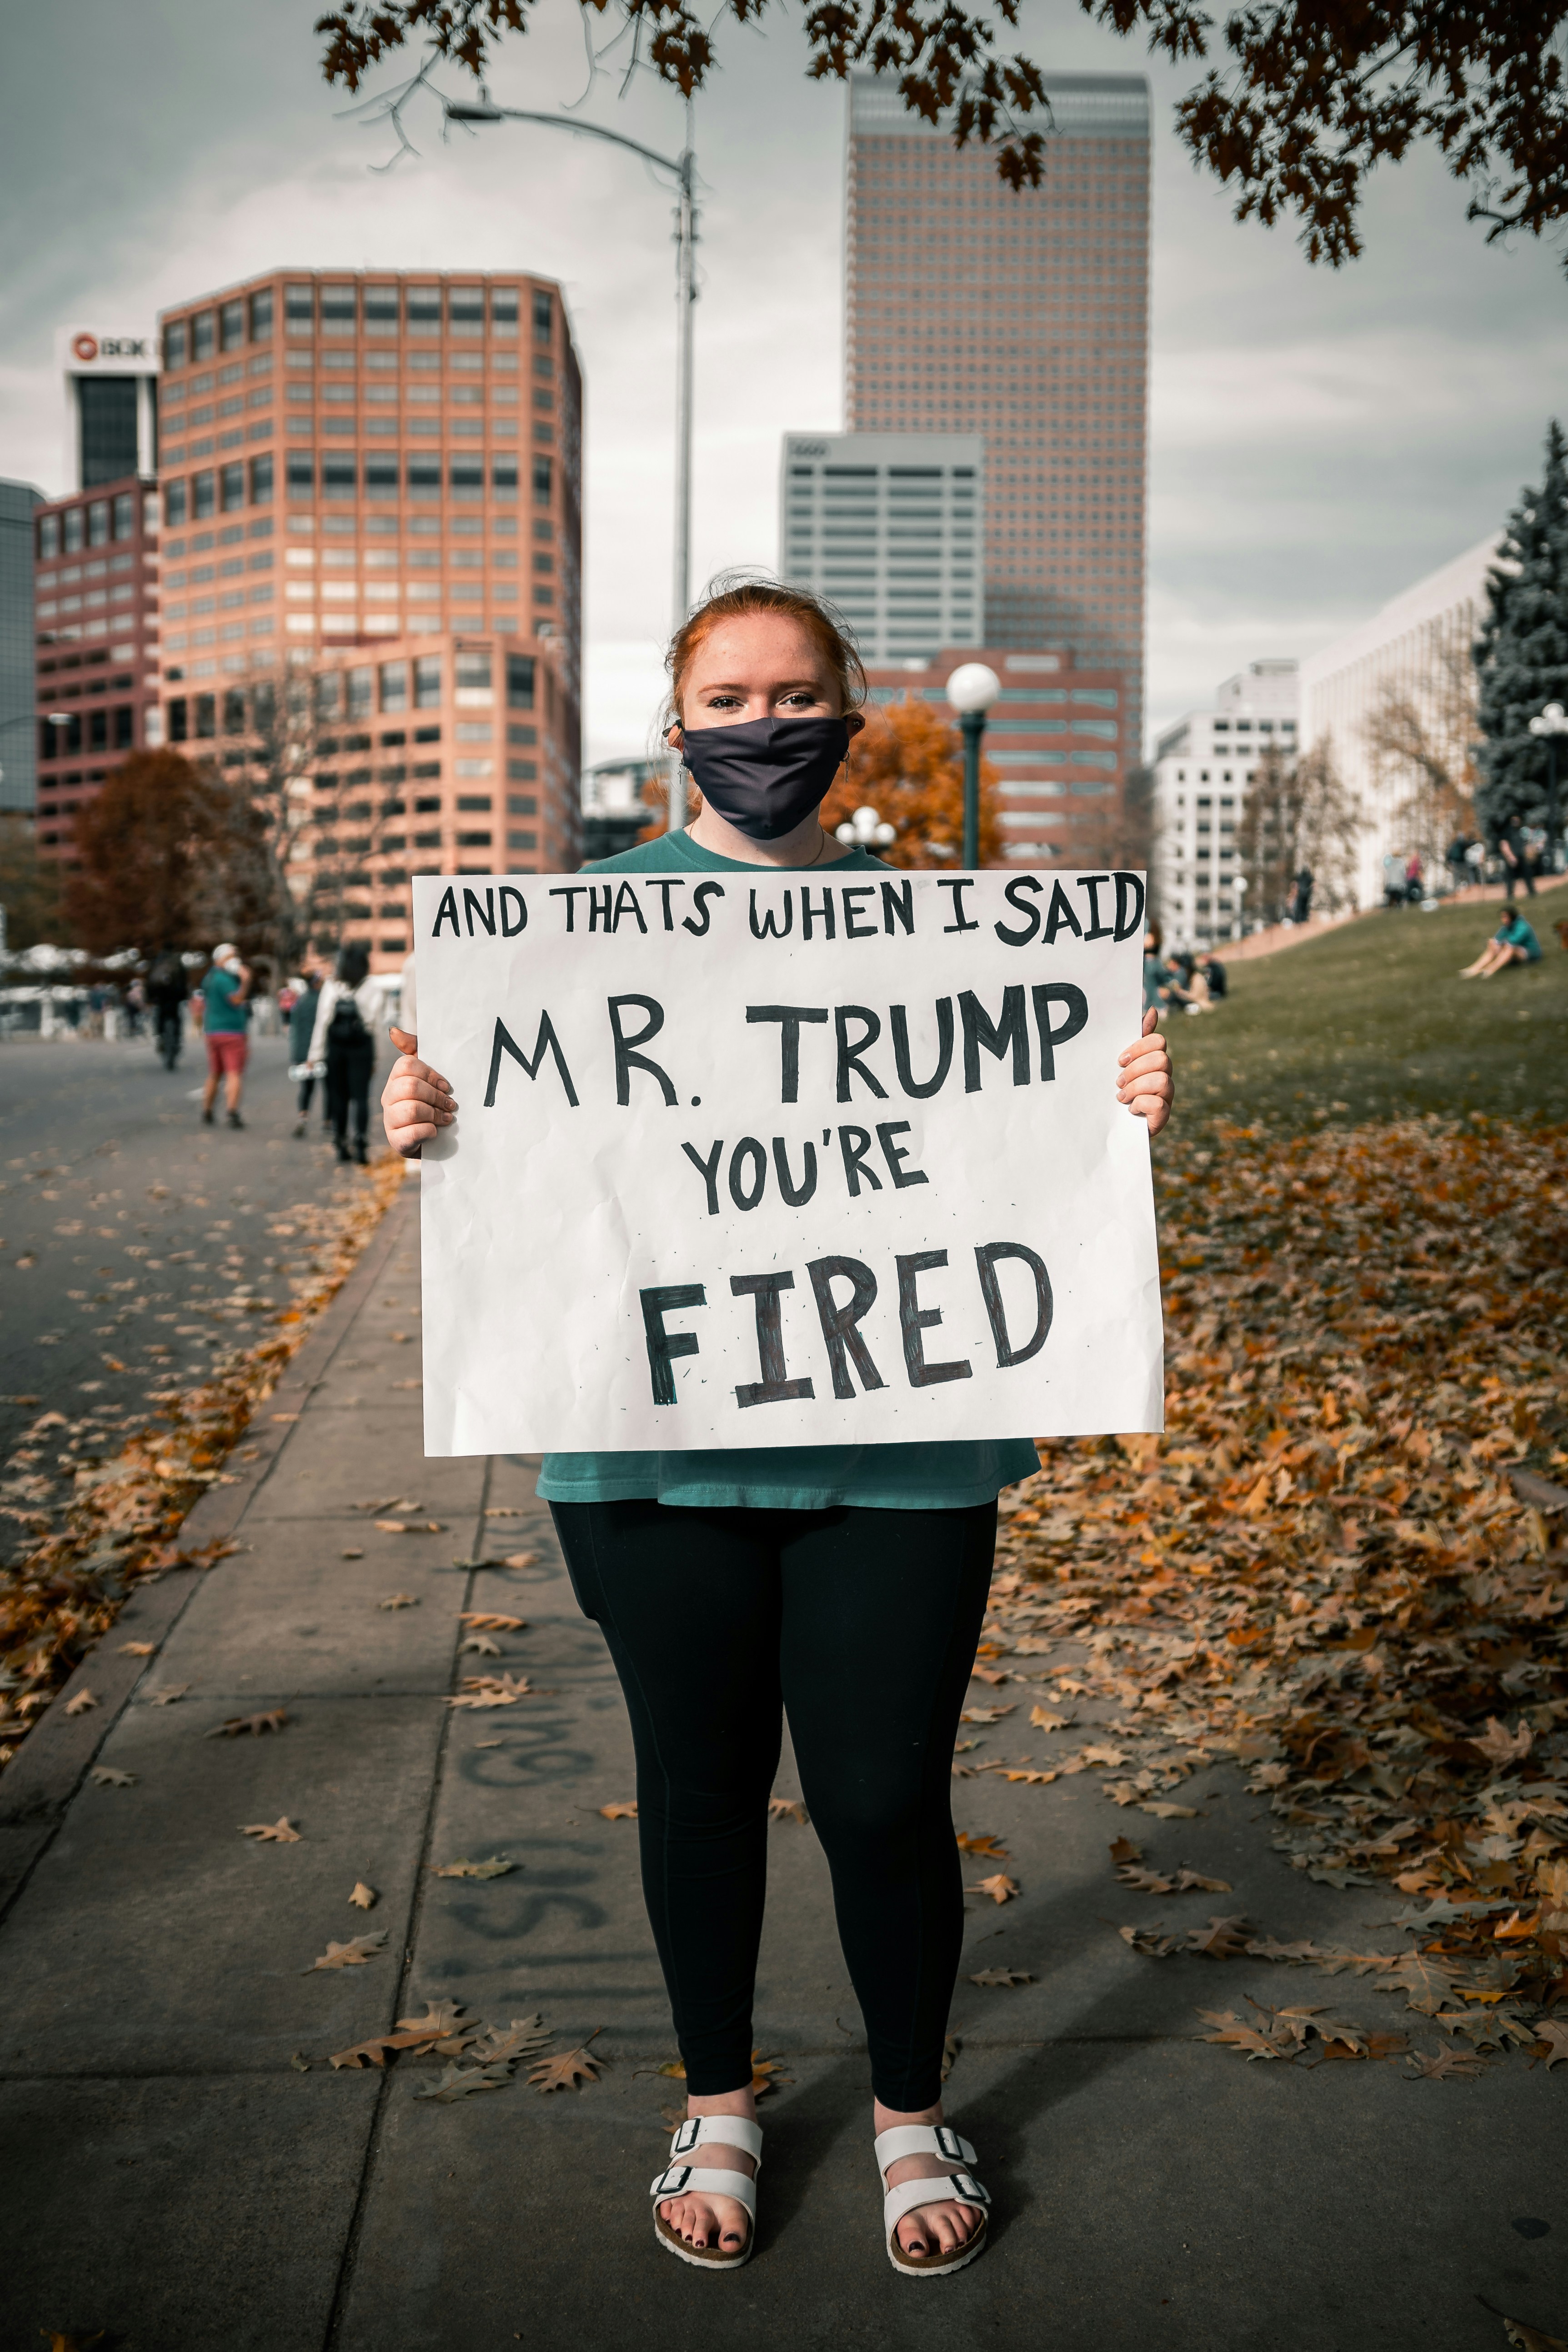 BOK
AND THATS WHEN I SAID
MR. TRUMP
YOU'RE
FIRED